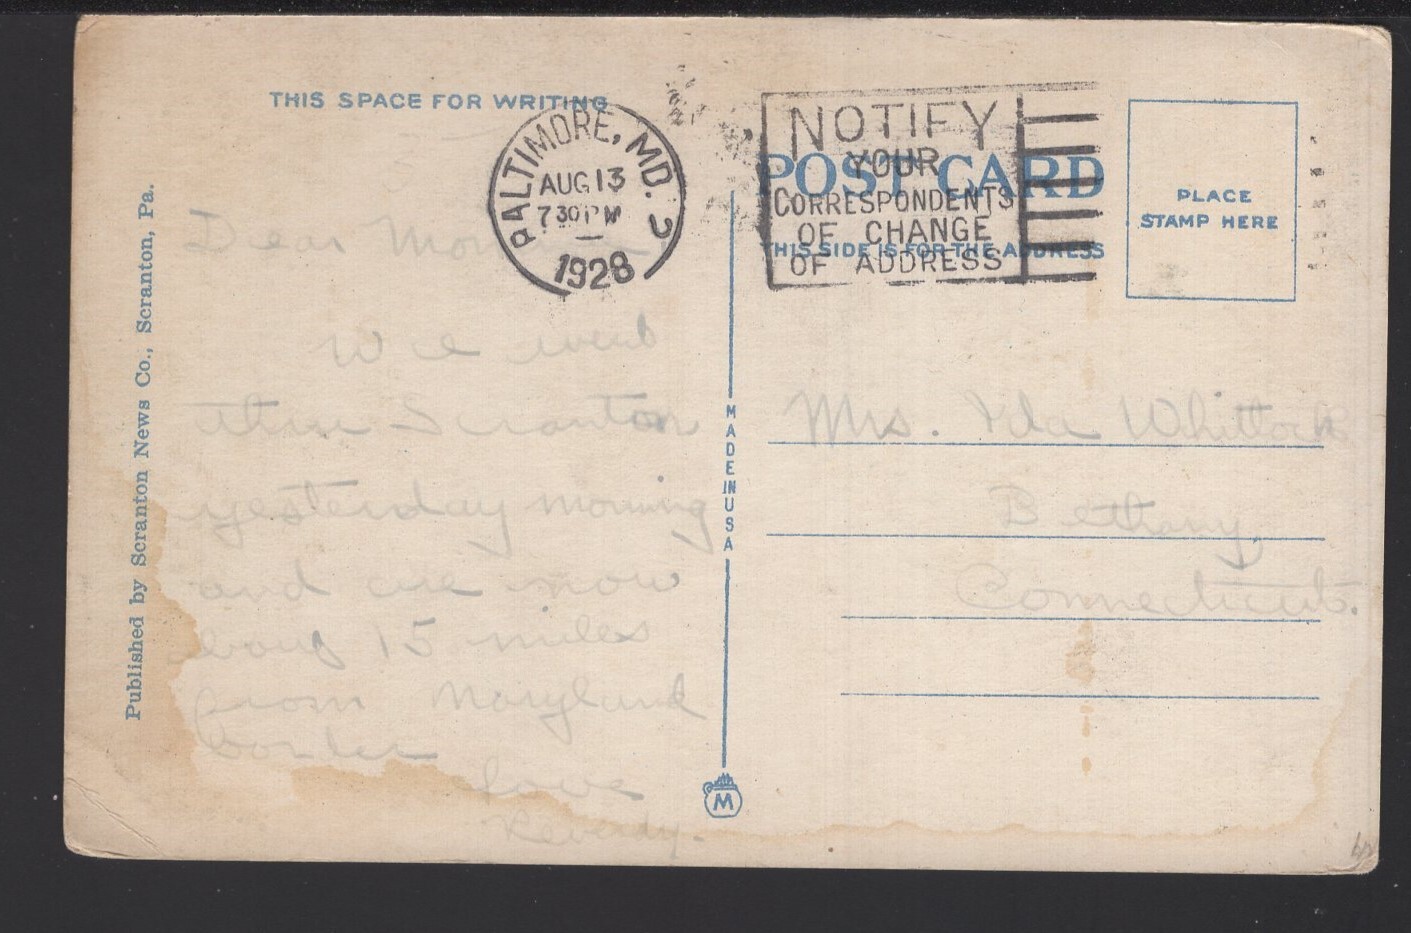 THIS SPACE FOR WRITING
BALTIMORE, MD. 2
AUG 13
7 30 PM
1928
NOTIFY
YOUR
CORRESPONDENTS
OF CHANGE
OF ADDRESS
POST CARD
THIS SIDE IS FOR THE ADDRESS
PLACE
STAMP HERE
Published by Scranton News Co., Scranton, Pa.
Dear
We went
thru Scranton
yesterday morning
and are now
about 15 miles
from Maryland
border
Love
MADE IN USA
M
Mrs. Ida Whittock
Bethany,
Connecticut.